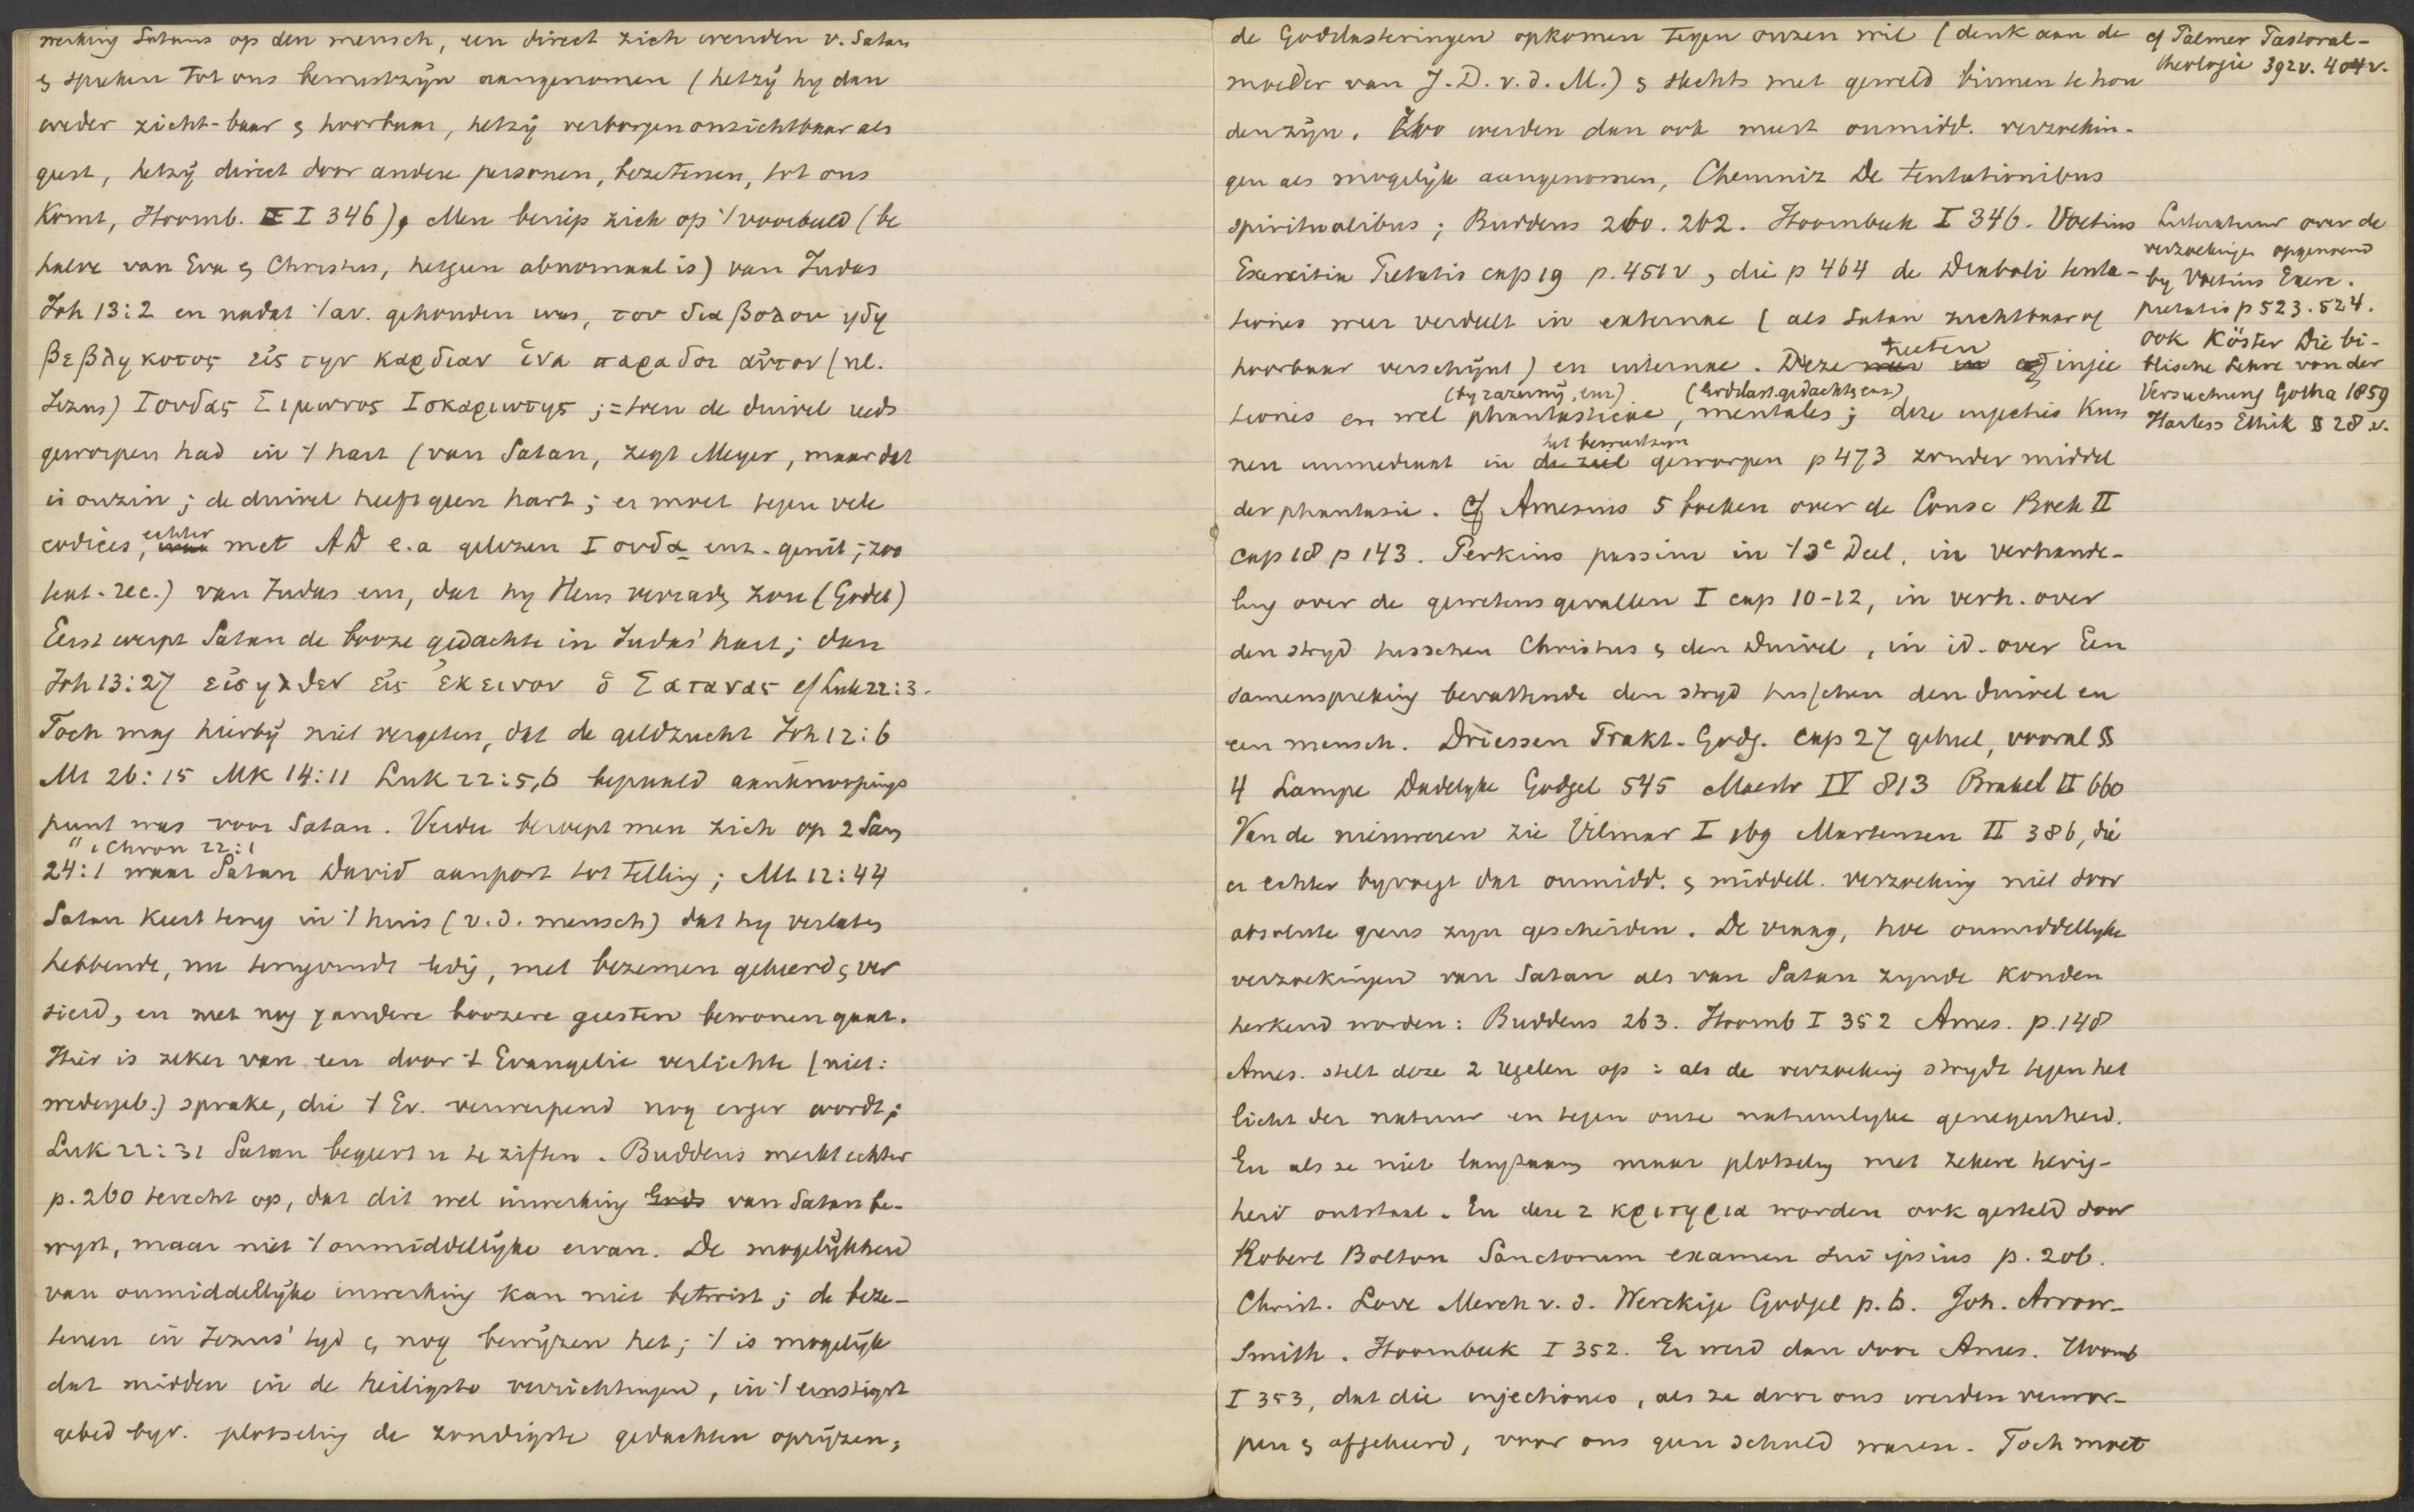 werking Satans op den mensch, een direct zich wenden v. Satan
& spreken tot ons bewustzijn aangenomen (hetzij hy dan
weder zicht-baar & hoorbaar, hetzij verborgen onzichtbaar als
geest, hetzij direct door andere personen, bezetenen, tot ons
komt, Hoornb. I 346), Men beriep zich op 't voorbeeld (be
halve van Eva & Christus, hetgeen abnormaal is) van Judas
Joh 13:2 en nadat 't av. gehouden was, του διαβολου ηδη
βεβληκοτος εἰς την καρδιαν ἱνα παραδοι αὐτον (nl.
Jezus) Ιουδας Σιμωνος Ισκαριωτης ; = toen de duivel reeds
geworpen had in 't hart (van Satan, zegt Meyer, maar dat
is onzin ; de duivel heeft geen hart ; er moet tegen vele
codices, echter met AD e.a gelezen Ιουδα enz. genit ; zoo
text. rec.) van Judas enz, dat hy Hem verraden zou (Godet)
Eerst werpt Satan de booze gedachte in Judas' hart ; dan
Joh 13:27 εἰσηλθεν εἰς ἐκεινον ὁ Σατανας cf Luk 22:3.
Toch mag hierbij niet vergeten, dat de geldzucht Joh 12:6
Mt 26:15 Mk 14:11 Luk 22:5,6 bepaald aanknoopings
punt was voor Satan. Verder beroept men zich op 2 Sam
" 1 Chron 22:1
24:1 waar Satan David aanport tot telling ; Mt 12:44
Satan keert terug in 't huis (v.d. mensch) dat hy verlaten
hebbende, nu terugvindt ledig, met bezemen gekeerd & ver
sierd, en met nog 7 andere boozere geesten bewonen gaat.
Hier is zeker van een door 't Evangelie verlichte (niet:
wedergeb.) sprake, die 't Ev. verwerpend nog erger wordt ;
Luk 22:31 Satan begeert u te ziften. Buddeus merkt echter
p. 260 terecht op, dat dit wel inwerking Gods van Satan be-
wyst, maar niet 't onmiddellijke ervan. De mogelijkheid
van onmiddellijke inwerking kan niet betwist ; de beze-
tenen in Jezus' tyd & nog bewijzen het ; 't is mogelijk
dat midden in de heiligste verrichtingen, in 't ernstigst
gebed byv. plotseling de zondigste gedachten oprijzen,
de Godslasteringen opkomen tegen onzen wil (denk aan de
moeder van J. D. v. d. M.) & slechts met geweld binnen te hou
den zijn. Zoo werden dan ook meest onmidd. verzoekin-
gen als mogelijk aangenomen, Chemniz De tentationibus
spiritualibus ; Buddeus 260. 262. Hoornbeek I 346. Voetius
Exercitia Pietatis cap 19 p. 451 v, die p 464 de Diaboli tenta-
tiones weer verdeelt in externae (als Satan zichtbaar of
hoorbaar verschijnt) en internae. Deze heeten injec
(by razernij, enz) (Godslast. gedachten enz)
tiones en wel phantasticae, mentales ; deze injecties kun
het bewustzyn
nen immediaat in de ziel geworpen p 473 zonder middel
der phantasie. cf Amesius 5 boeken over de Consc Boek II
cap 18 p 143. Perkins passim in 't 3e Deel, in verhande-
ling over de gewetensgevallen I cap 10-12, in verh. over
den stryd tusschen Christus & den Duivel, in id. over Een
samenspreking bevattende den stryd tusschen den duivel en
een mensch. Driessen Prakt. Godg. cap 27 geheel, vooral §
4 Lampe Dadelyke Godgel 545 Maestr IV 813 Brakel II 660
Van de nieuweren zie Vilmar I 169 Martensen II 386, die
er echter byvoegt dat onmidd. & middell. verzoeking niet door
absolute grens zyn gescheiden. De vraag, hoe onmiddellyke
verzoekingen van Satan als van Satan zynde konden
herkend worden : Buddeus 263. Hoornb I 352 Ames. p. 148
Ames. stelt deze 2 regelen op : als de verzoeking strydt tegen het
licht der natuur en tegen onze natuurlyke genegenheid.
En als ze niet langzaam maar plotseling met zekere hevig-
heid ontstaat. En deze 2 κριτηρια worden ook gesteld door
Robert Bolton Sanctorum examen sui ipsius p. 206.
Christ. Love Merch v. d. Werckige Godgel p. 6. Joh. Arrow-
Smith. Hoornbeek I 352. Er werd dan door Ames. Hoornb
I 353, dat die injectiones, als ze door ons werden verwor-
pen & afgekeerd, voor ons geen schuld waren. Toch moet
cf Palmer Pastoral-
theologie 392v. 404v.
Literatuur over de
verzoekingen opgenoemd
by Voetius Exerc.
pietatis p 523. 524.
ook Köster Die bi-
blische Lehre von der
Versuchung Gotha 1859
Harless Ethik § 28 v.